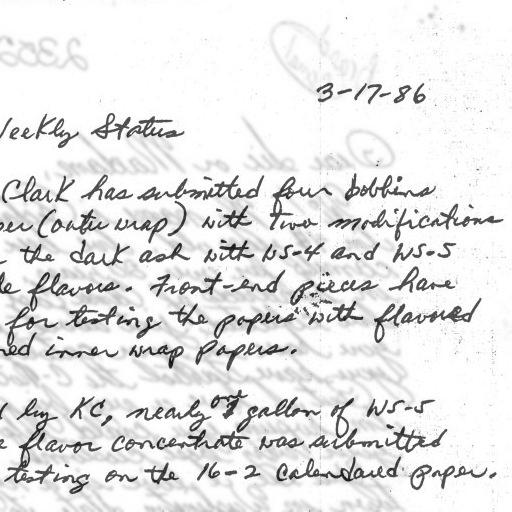 3-17-86
Weekly Status
Clark has submitted four bobbins
per (outer wrap) with two modifications
the dark ash with WS-4 and WS-5
flavors. Front-end pieces have
for testing the papers with flavored
inner wrap papers.
by KC, nearly one gallon of WS-5
flavor concentrate was submitted
testing on the 16-2 Calendared paper.